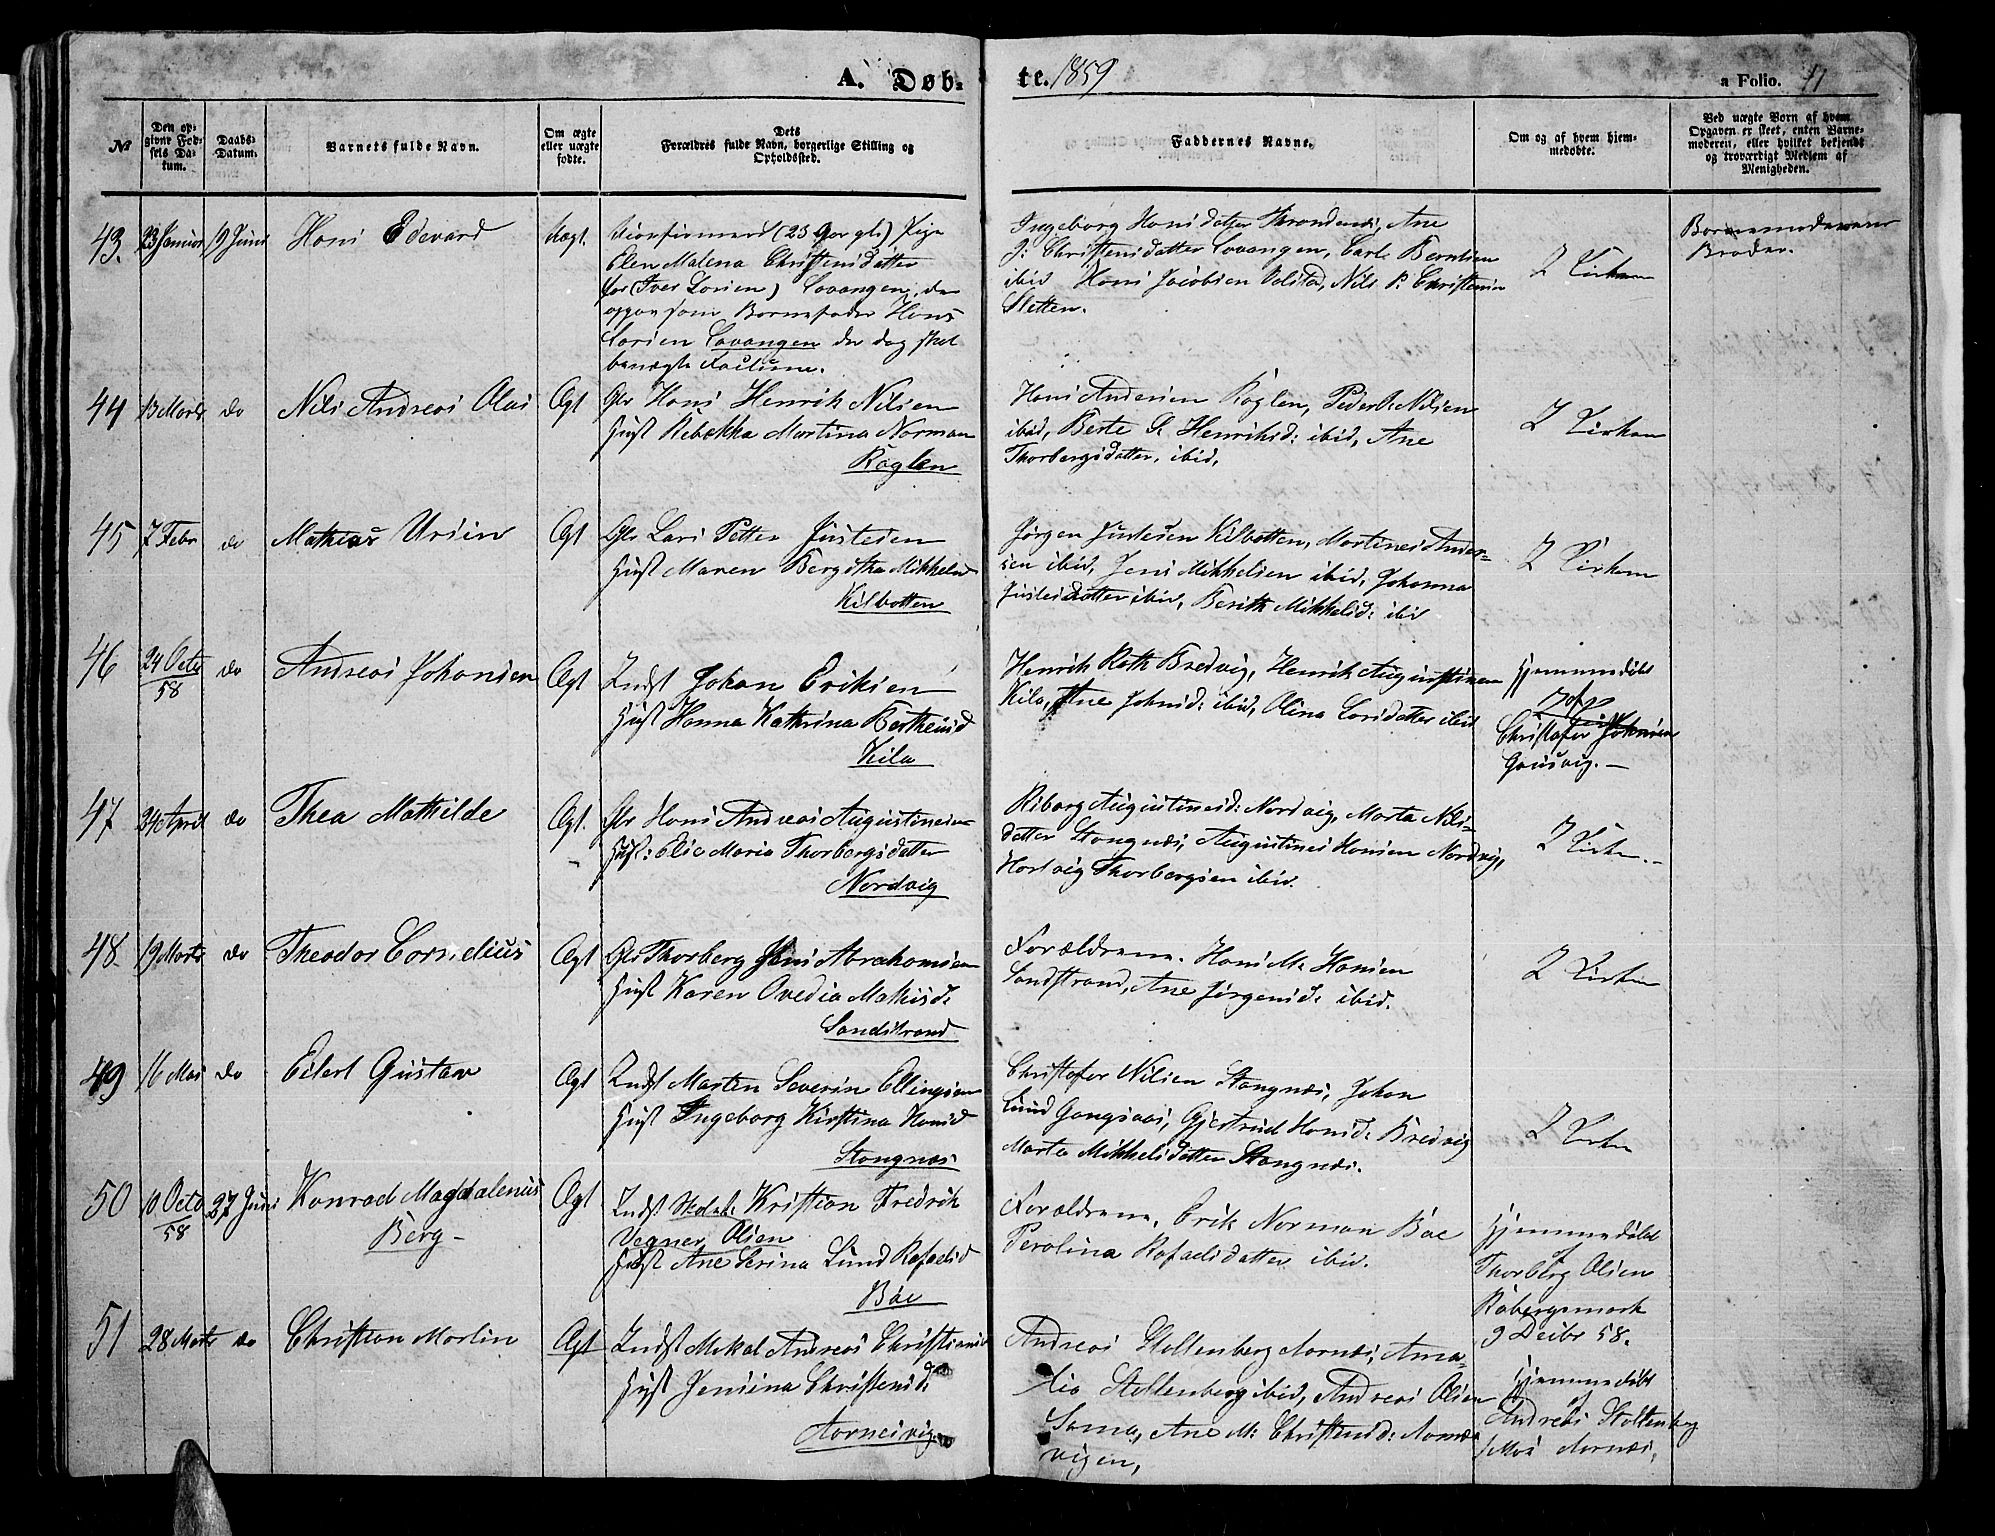 A. Døb-
te. 1859
a Folio. 41
№
Den op-
givne Fød-
sels Da-
tum.
Daabs-
Datum.
Barnets fulde Navn.
Om ægte
eller uægte
fødte.
Dets
Forældres fulde Navn, borgerlige Stilling og
Opholdssted.
Faddernes Navne.
Om og af hvem hjem-
medøbte.
Ved uægte Børn af hvem
Opgaven er skeet, enten Barne-
moderen, eller hvilket bekjendt
og troværdigt Medlem af
Menigheden.
43. 23 Januar 19 Juni Hans Edevard Uægt.
(23 Aar gl.) Pige
Elen Malena Christensdatter
for (Iver Larsen) Lavangen, der
som Barnefader Hans
Larsen Lavangen der dog skal
benægte Factum.
Ingeborg Hansdatter Throndenæs, Ane
J: Christensdatter Lavangen, Carl Berntsen
ibid Hans Jacobsen Nils P. Christensen
Sletten.
I Kirken
Barnemoderens
Broder.
44 13 Marts do Nils Andreas Olai Ægt
Gbr Hans Henrik Nilsen
Hust Rebekka Martina Norman
Røglen
Hans Andersen Røglen, Peder P. Nilsen
ibid, Berte S. Henriksd: ibid, Ane
Thorbergsdatter, ibid,
I Kirken
45 7 Febr do Mathias Ursin Ægt
Gbr Lars Petter Justesen
Hust Maren Bergitha Mikkelsd
Kilbotten
Jørgen Justesen Kilbotten, Martines Ander-
sen ibid, Jens Mikkelsen ibid, Johanna
Justesdatter, ibid, Berith Mikkelsd: ibid
I Kirken
46 24 Octo 58 do Andreas Johansen Ægt
Indst Johan Eriksen
Hust Hanna Kathrina Bertheusd
Kila
Henrik Rath Bredvig, Henrik Augustinsen
Kila, Ane Johnsd: ibid, Olina Larsdatter ibid
Hjemmedøbt
af
Christofer Johnsen
Gausvig. –
47 24 April do Thea Mathilde Ægt.
Gbr Hans Andreas Augustinsen
Hust: Elie Maria Thorbergsdatter
Nordvig
Riborg Augustinesd: Nordvig, Marta Nils-
datter Stangnæs, Augustines Hansen Nordvig,
Hartvig Thorbergsen ibid.
I Kirken. –
48. 19 Marts do Theodor Cornelius Ægt
Gbr Thorberg Jens Abrahamsen
Hust Karen Ovedia Mathisd.
Sandstrand
Forældrene. Hans M. Hansen
Sandstrand, Ane Jørgensd: ibid.
I Kirken
49 16 Mai do Eilert Gustav Ægt
Indst Marten Severin Ellingsen
Hust Ingeborg Kirstina Hansd
Stangnæs
Christofer Nilsen Stangnæs, Johan
Lund Gangsaas, Gjertrud Hansd: Bredvig
Marta Mikkelsdatter Stangnæs.
I Kirken
50 10 Octo 58 27 Juni Konrad Magdalenius
Berg – Ægt
Indst Kristian Fredrik
Vegner Olsen
Hust Ane Serina Lund Rafaelsd
Bøe
Forældrene, Erik Norman Bøe
Perolina Rafaelsdatter ibid.
Hjemmedøbt
af
Thorberg Olsen
Røbergsmark
9 Decbr 58.
51 28 Marts do Christian Morlin Ægt
Indst Mikal Andreas Christiansen
Hust Jensina Christensd.
Aarnesvig
Andreas Stoltenberg Aarnæs, Ama-
lia Stoltenberg ibid, Andreas Olsen
Sama, Ane M: Christensd: Aarnæs-
vigen,
Hjemmedøbt
af
Andreas Stoltenberg
Moe Aarnæs,